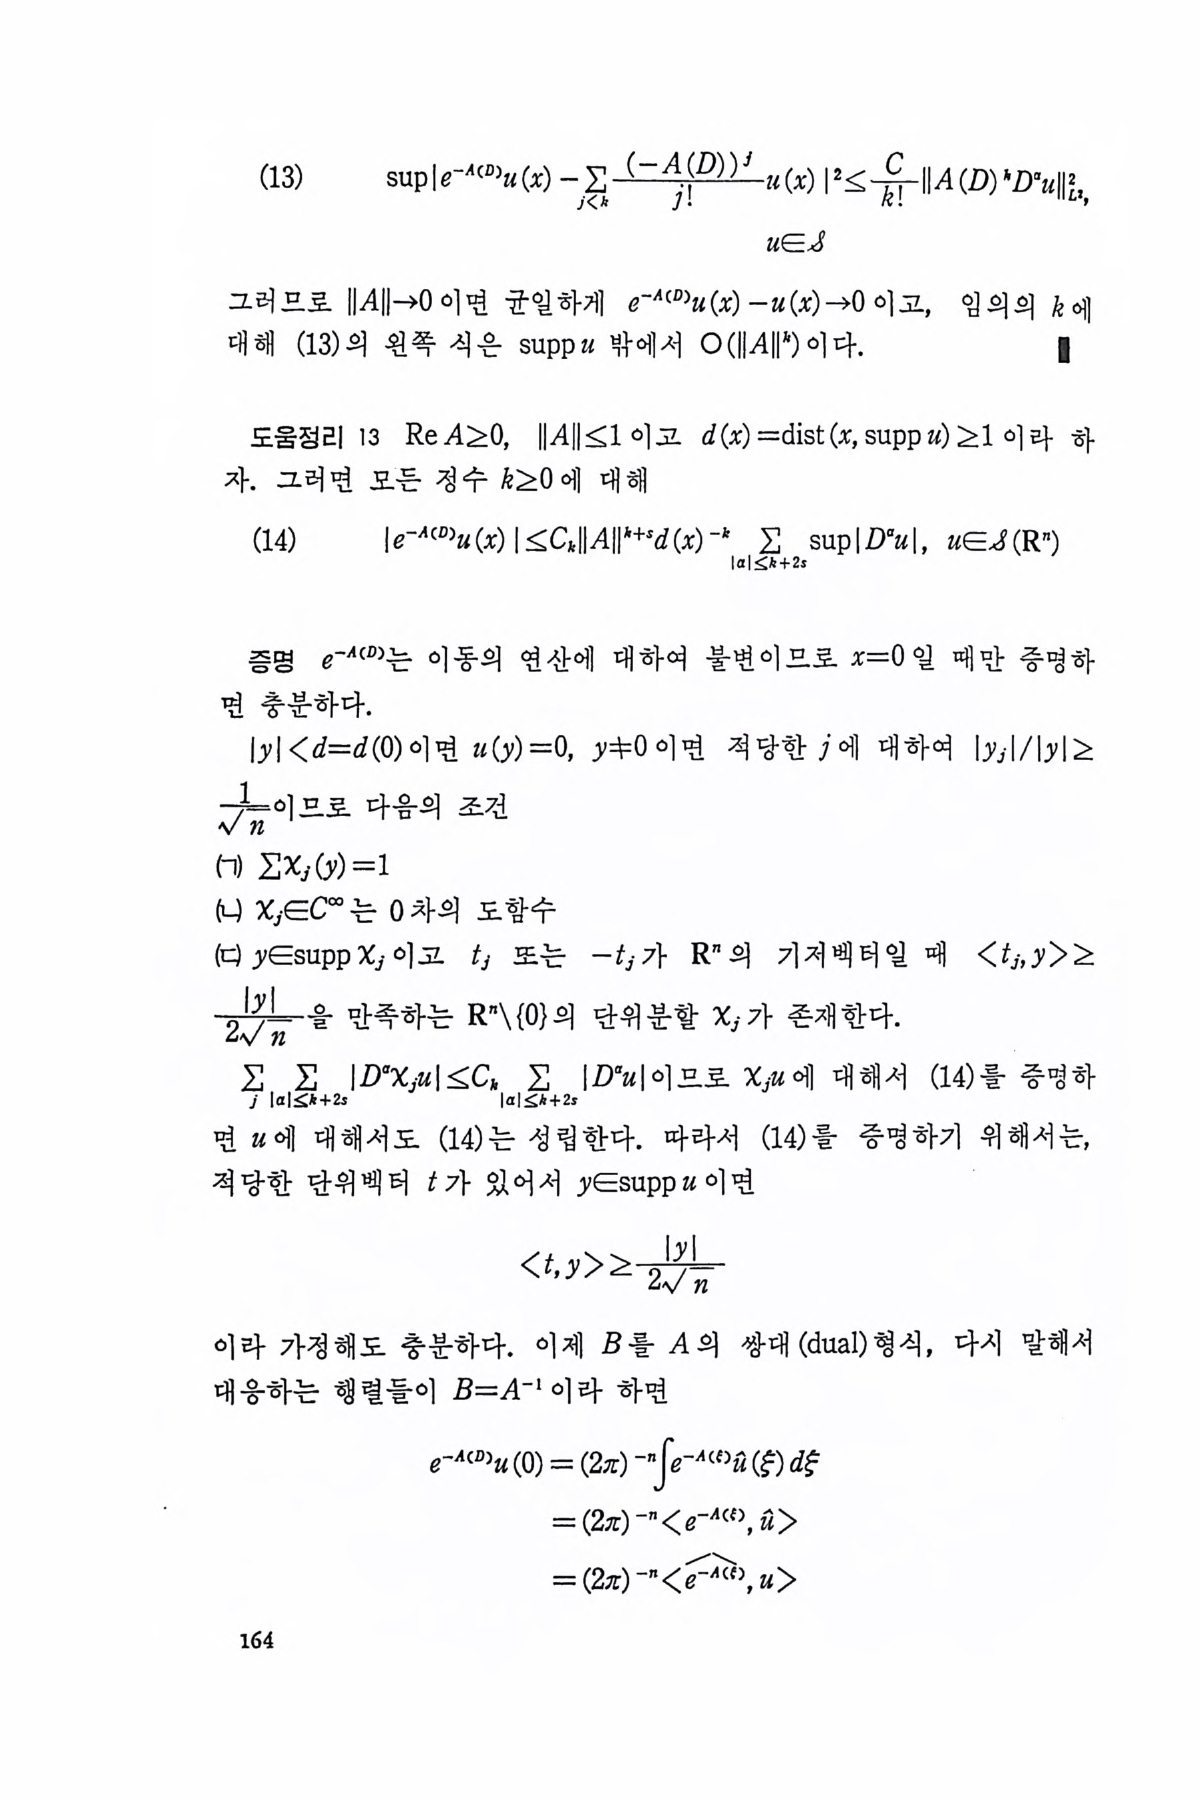 (13) sup|e^{-A(D)}u(x) − Σ_{j<k} \frac{(−A(D))^j}{j!} u(x)|² ≤ \frac{C}{k!} ‖A(D)^k D^α u‖²_{L²},
u∈𝒮
그러므로 ‖A‖→0이면 균일하게 e^{-A(D)}u(x)−u(x)→0이고, 임의의 k에
대해 (13)의 왼쪽 식은 supp u 밖에서 O(‖A‖^k)이다. ▮
도움정리 13 Re A≥0, ‖A‖≤1이고 d(x)=dist(x, supp u)≥1이라 하
자. 그러면 모든 정수 k≥0에 대해
(14) |e^{-A(D)}u(x)|≤C_k‖A‖^{k+s}d(x)^{-k} Σ_{|α|≤k+2s} sup|D^α u|, u∈𝒮(R^n)
증명 e^{-A(D)}는 이동의 연산에 대하여 불변이므로 x=0일 때만 증명하
면 충분하다.
|y|<d=d(0)이면 u(y)=0, y≠0이면 적당한 j에 대하여 |y_j|/|y|≥
\frac{1}{√n}이므로 다음의 조건
(ㄱ) Σχ_j(y)=1
(ㄴ) χ_j∈C^∞는 0차의 도함수
(ㄷ) y∈supp χ_j이고 t_j 또는 −t_j가 R^n의 기저벡터일 때 <t_j, y>≥
\frac{|y|}{2√n}을 만족하는 R^n\{0}의 단위분할 χ_j가 존재한다.
Σ_j Σ_{|α|≤k+2s} |D^α χ_j u|≤C_k Σ_{|α|≤k+2s} |D^α u|이므로 χ_j u에 대해서 (14)를 증명하
면 u에 대해서도 (14)는 성립한다. 따라서 (14)를 증명하기 위해서는,
적당한 단위벡터 t가 있어서 y∈supp u이면
<t, y>≥\frac{|y|}{2√n}
이라 가정해도 충분하다. 이제 B를 A의 쌍대(dual)형식, 다시 말해서
대응하는 행렬들이 B=A^{-1}이라 하면
e^{-A(D)}u(0)=(2π)^{-n}∫e^{-A(ξ)}û(ξ)dξ
=(2π)^{-n}<e^{-A(ξ)}, û>
=(2π)^{-n}<\widehat{e^{-A(ξ)}}, u>
164